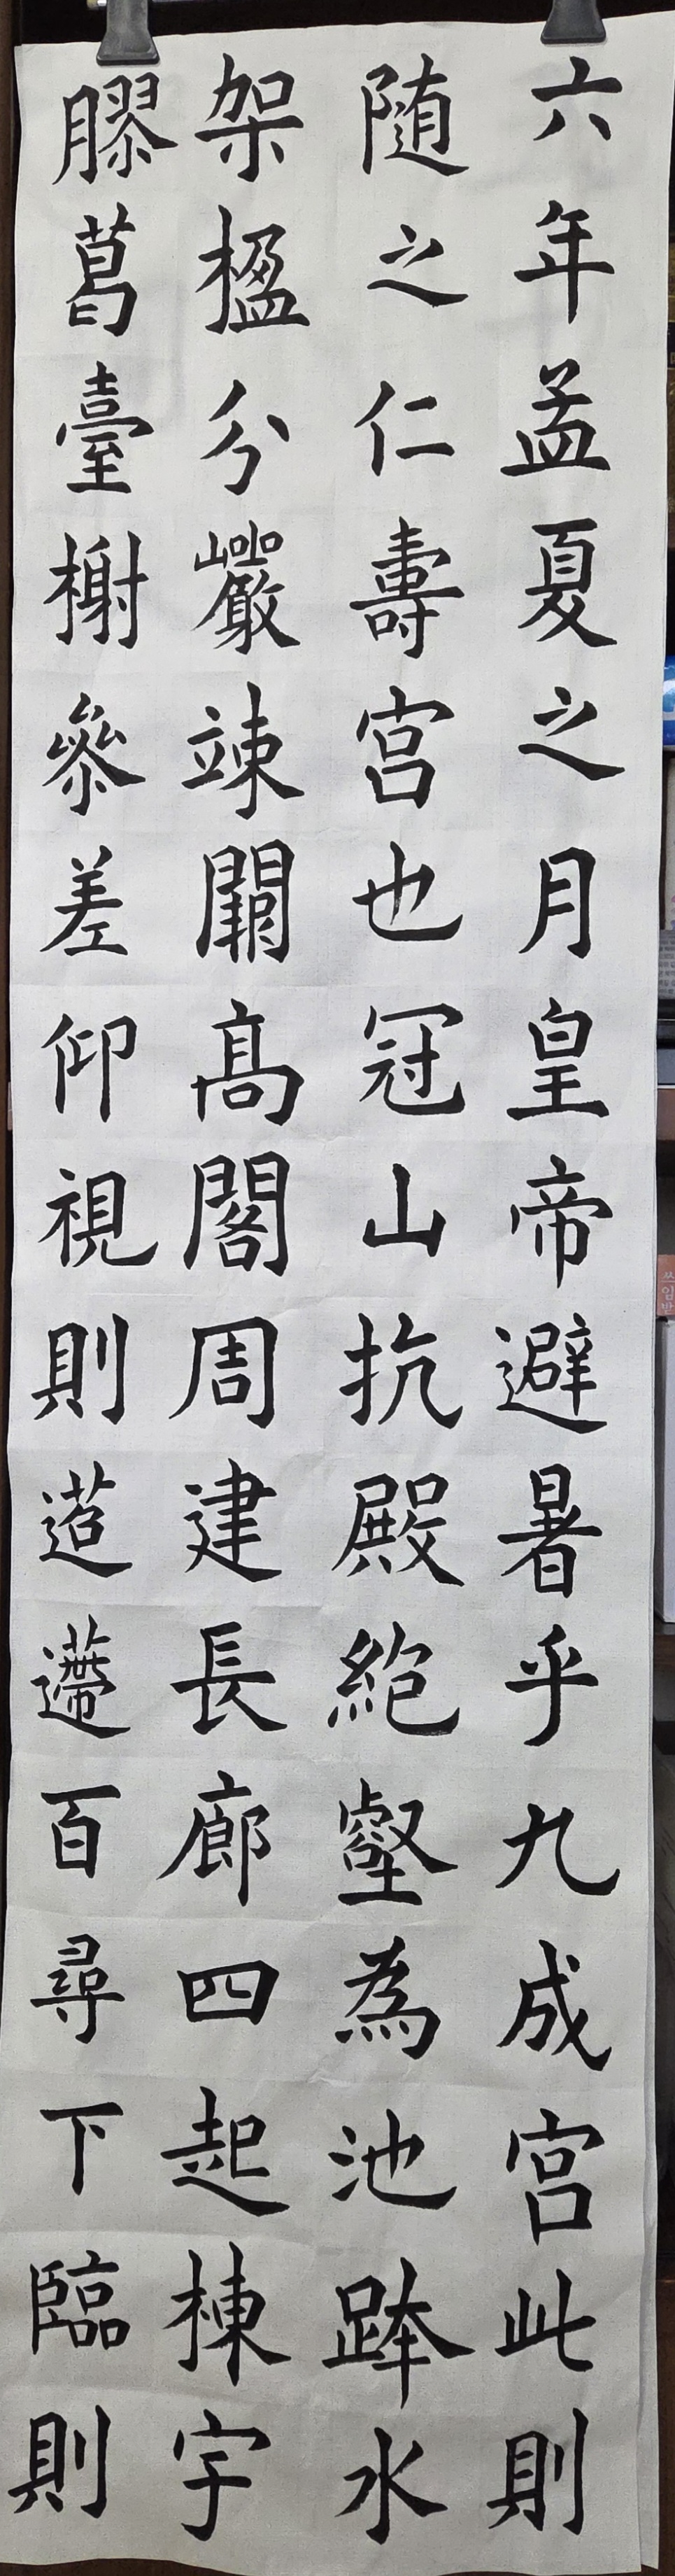 六年孟夏之月皇帝避暑乎九成宮此則
随之仁壽宮也冠山抗殿絶壑為池跨水
架楹分巖竦闕髙閣周建長廊四起棟宇
膠葛臺榭參差仰視則迢遰百尋下臨則
쓰임받